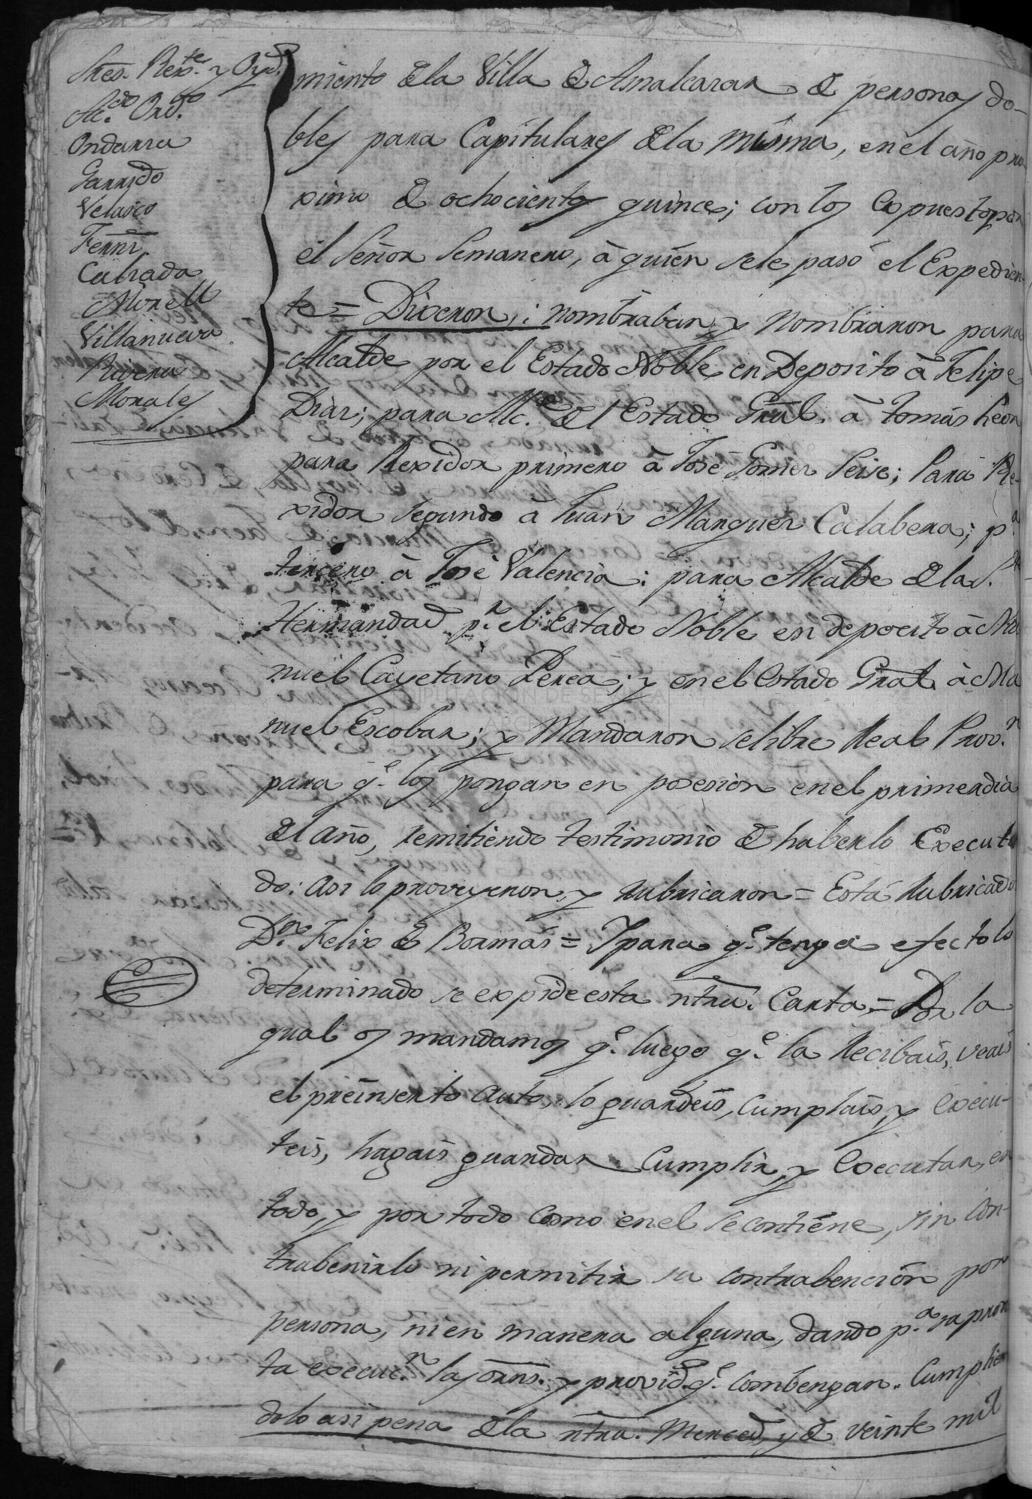 Sres. Rexte. y Oyds.
Alcde. Ordo.
Ondarza
Garrido
Velasco
Ferrz
Calzada
Morell
Villanueva.
Rivera
Morales
miento de la Villa de Almalcaran de personas do-
bles para Capitulares de la misma, en el año pro
ximo de ochocientos quince; con los Expuesto por
el Señor Semanero, à quién se le pasó el Expedien
te = Dixeron,: nombraban, y Nombraron para
Alcalde por el Estado Noble en Deposito à Felipe
Diaz; para Alce. del Estado Gral. à Tomás León
para Rexidor primero à José Gomez Seise; Para Re-
xidor Segundo à Juan Marquez Calabera; pa.
tercero à José Valencia: para Alcalde de la Sta.
Hermandad pr. el Estado Noble en deposito à Ma
nuel Cayetano Perea; y en el Estado Gral. à Ma
nuel Escobar; y Mandaron se libre Real Provn.
para qe. los pongan en posesion en el primer dia
del año, remitiendo testimonio de haberlo Executa
do: asi lo proveyeron, y rubricaron = Está rubricado
Dn. Felix de Bormás = Y para qe. tenga efecto lo
determinado se expide esta ntra. Carta = Por la
qual os mandamos qe. luego qe. la Recibais, veais
el preinserto auto, lo guardeis, cumplais, y execu-
teis, hagais guardar Cumplir, y Executar, en
todo, y por todo como en el se contiéne, sin Con-
trabenirlo ni permitir su contrabención por
persona, ni en manera alguna, dando pa. su pron
ta execun. las orns. y provids. qe. combengan. Cumplien
dolo asi pena de la ntra. Merced, y de veinte mil